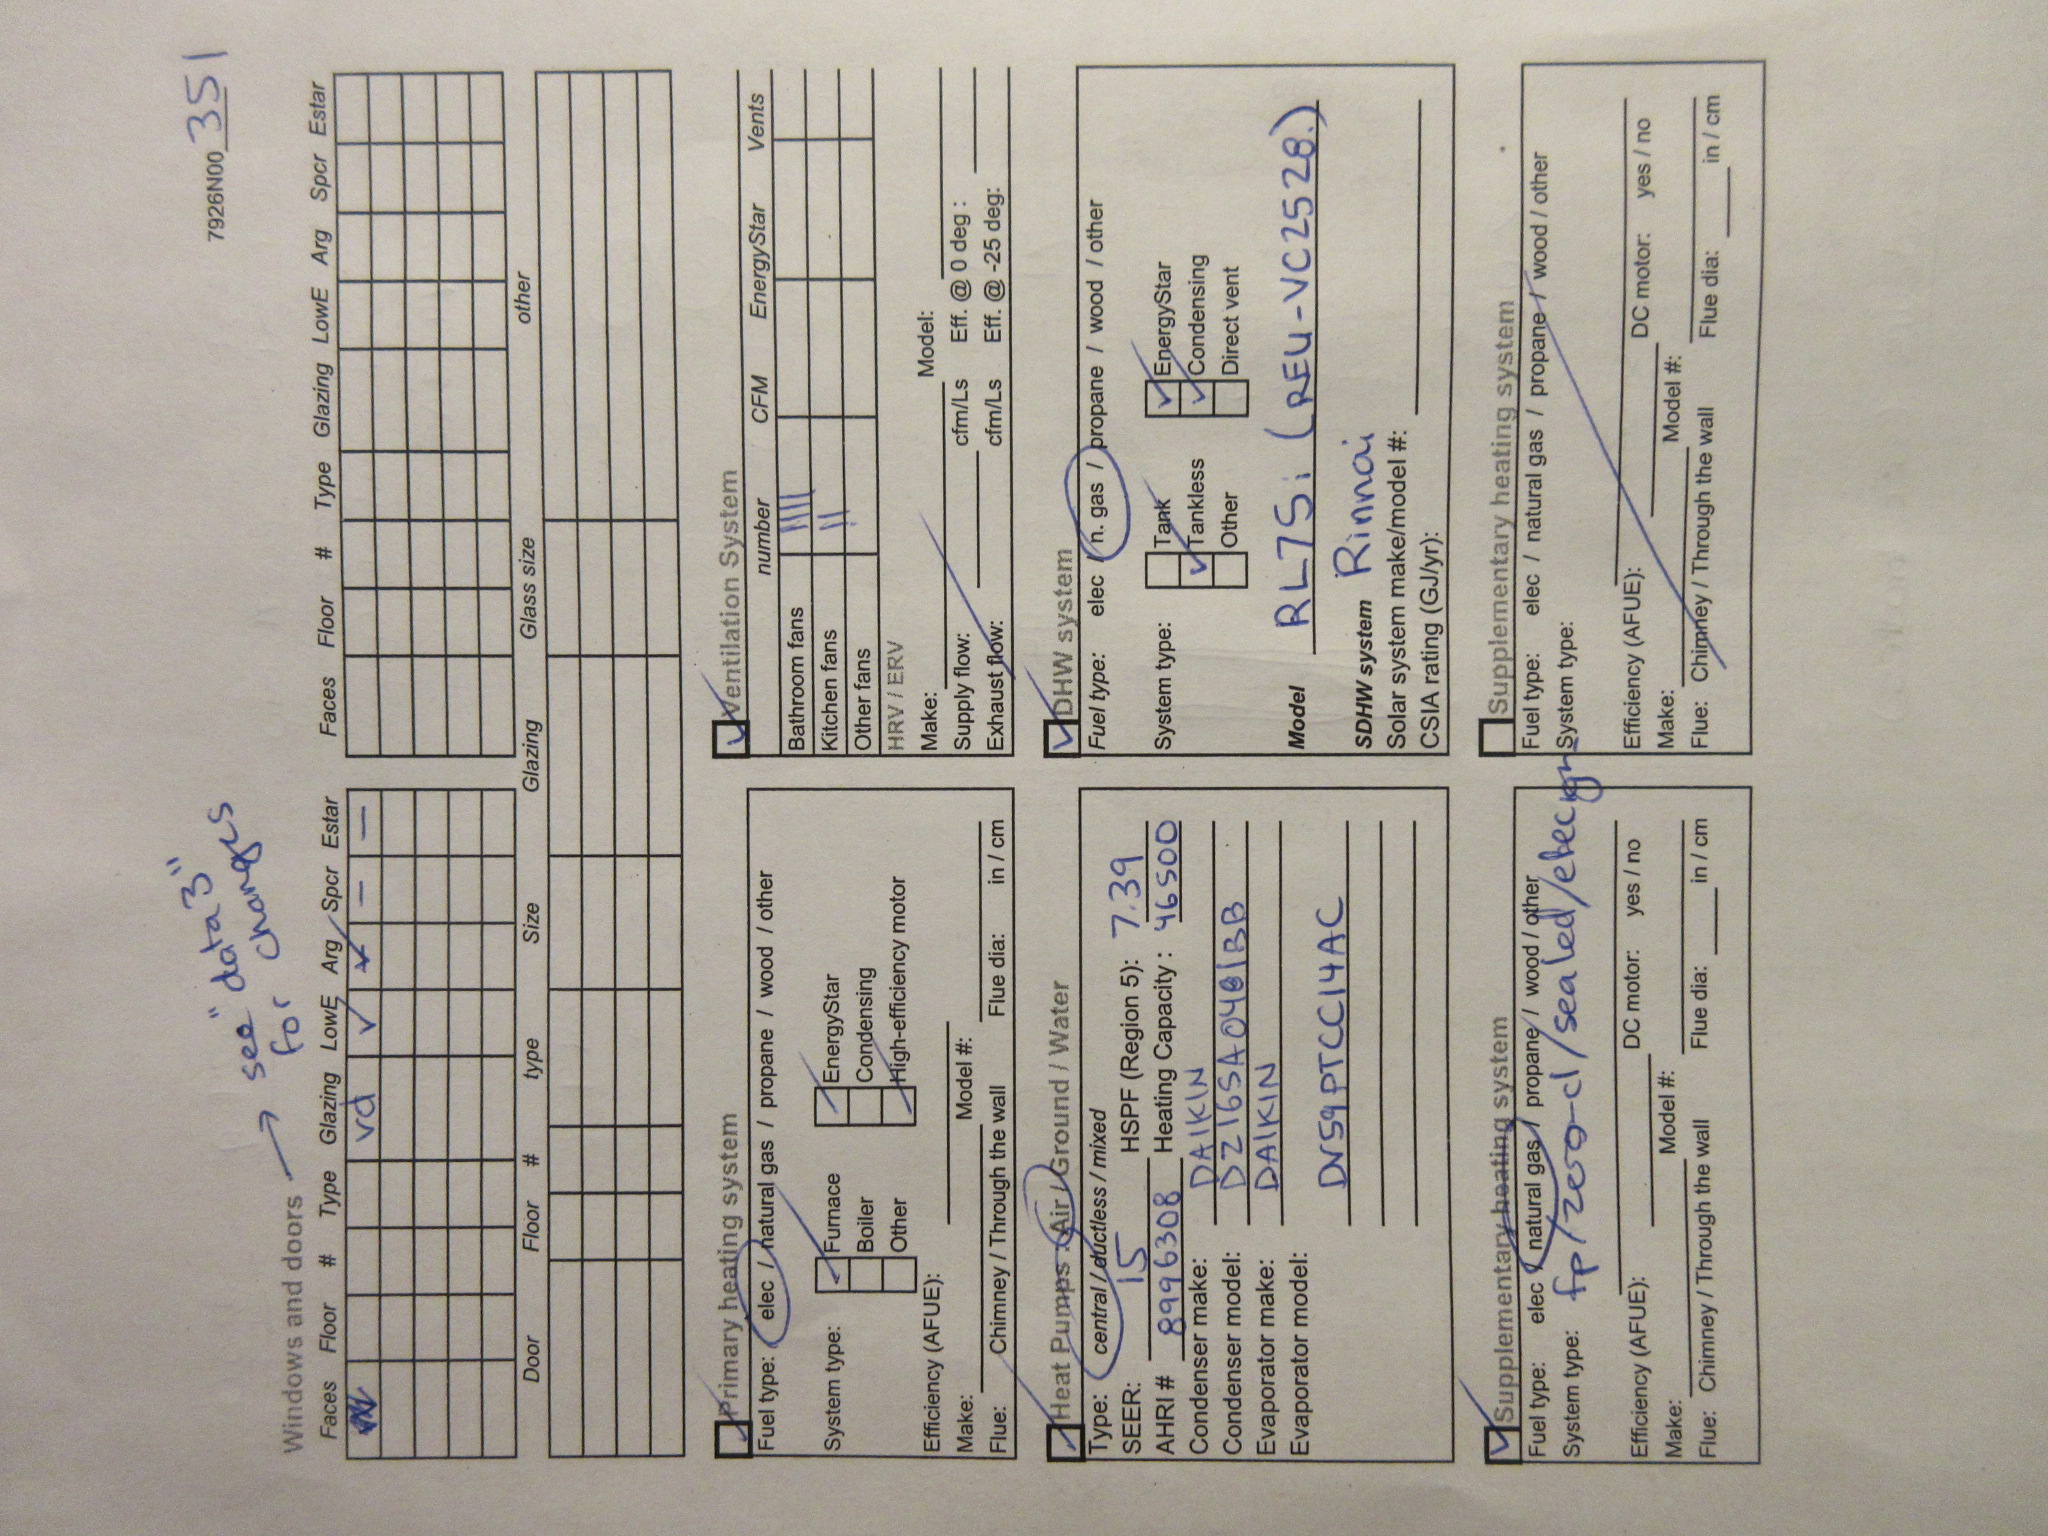 7926N00 351
Windows and doors → see "data 3"
for changes
Faces Floor # Type Glazing LowE Arg Spcr Estar
vd ✓ ✓ — —
Faces Floor # Type Glazing LowE Arg Spcr Estar
Door Floor # type Size Glazing Glass size other
✓ Primary heating system
Fuel type: elec / natural gas / propane / wood / other
System type: ✓ Furnace ✓ EnergyStar
Boiler Condensing
Other ✓ High-efficiency motor
Efficiency (AFUE):
Make: Model #:
Flue: Chimney / Through the wall Flue dia: in / cm
✓ Ventilation System
number CFM EnergyStar Vents
Bathroom fans ||||
Kitchen fans ||
Other fans
HRV / ERV
Make: Model:
Supply flow: cfm/Ls Eff. @ 0 deg :
Exhaust flow: cfm/Ls Eff. @ -25 deg:
✓ Heat Pumps: Air / Ground / Water
Type: central / ductless / mixed
SEER: 15 HSPF (Region 5): 7.39
AHRI # 8996308 Heating Capacity : 46500
Condenser make: DAIKIN
Condenser model: DZ16SA0481BB
Evaporator make: DAIKIN
Evaporator model:
DV59PTCC14AC
✓ DHW system
Fuel type: elec / n. gas / propane / wood / other
System type: Tank ✓ EnergyStar
✓ Tankless ✓ Condensing
Other Direct vent
Model RL75i (REU-VC2528.)
SDHW system Rinnai
Solar system make/model #:
CSIA rating (GJ/yr):
✓ Supplementary heating system
Fuel type: elec / natural gas / propane / wood / other
System type: fp/zero-cl/sealed/
Efficiency (AFUE): DC motor: yes / no
Make: Model #:
Flue: Chimney / Through the wall Flue dia: in / cm
Supplementary heating system
Fuel type: elec / natural gas / propane / wood / other
System type:
Efficiency (AFUE): DC motor: yes / no
Make: Model #:
Flue: Chimney / Through the wall Flue dia: in / cm